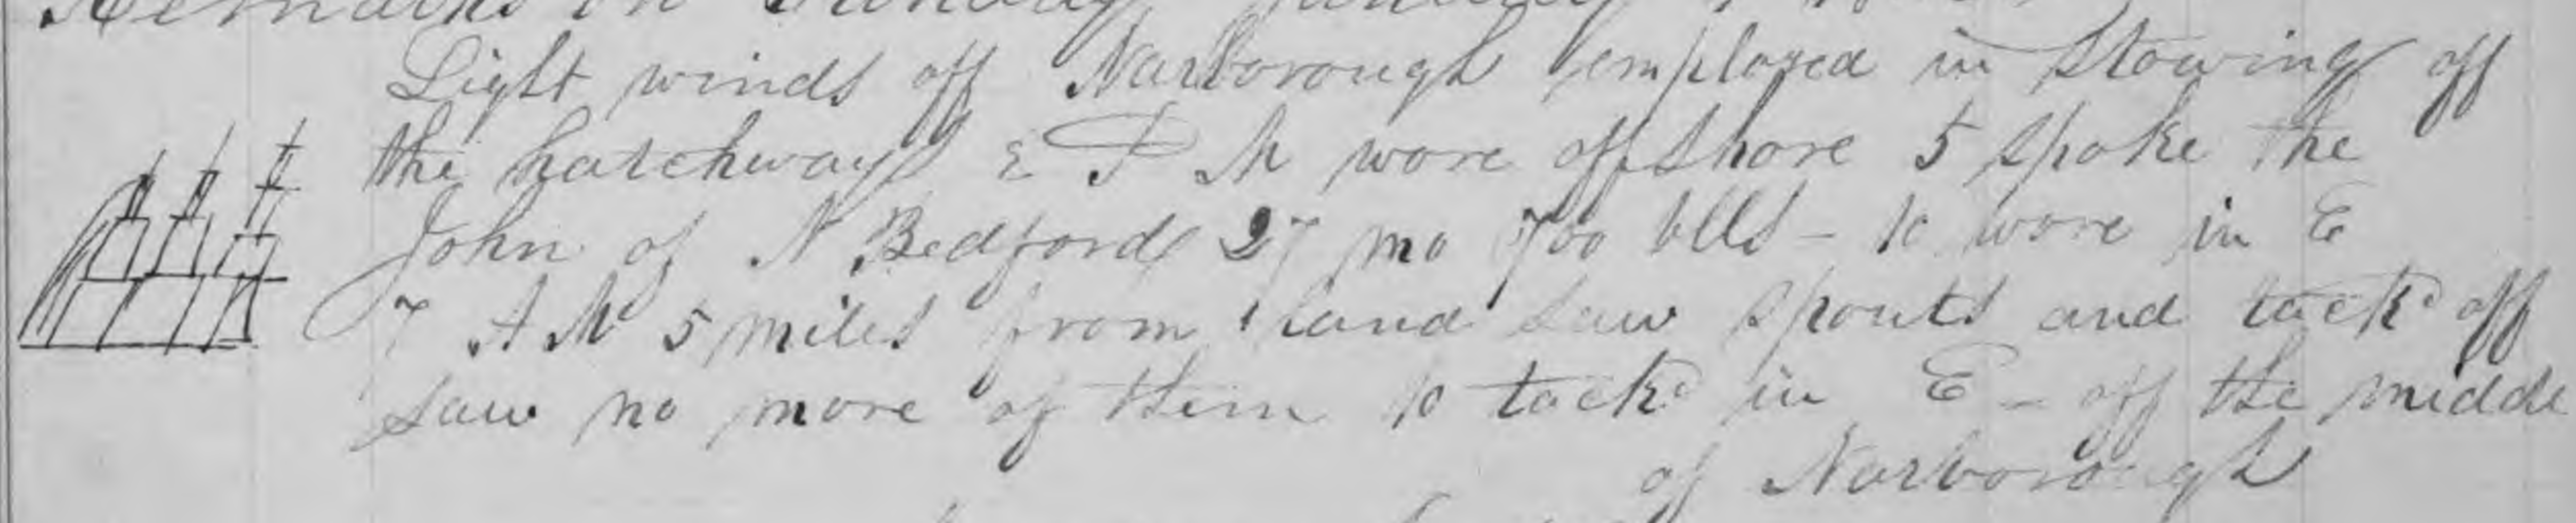 Remarks on
Light winds off Narborough employed in stowing off
the hatchways & P M wore off shore 5 spoke the
John of N Bedford 27 mo 700 blls - 10 wore in E
7 A M 5 miles from land saw spouts and tackd off
saw no more of them 10 tackd in E - off the middle
of Narborough